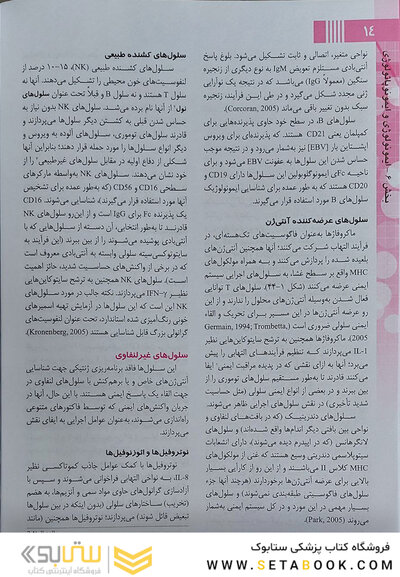 ۱۴
بخش ۶ - ایمونولوژی و ایمونوپاتولوژی
نواحی متغیر، اتصالی و ثابت تشکیل می‌شود. بلوغ پاسخ
آنتی‌بادی مستلزم تعویض IgM به نوع دیگری از زنجیره
سنگین (معمولاً IgG) می‌باشد که در نتیجه یک نوآرایی
ژنی مجدد شکل می‌گیرد و در طی این فرآیند، زنجیره
سبک بدون تغییر باقی می‌ماند (Corcoran, 2005).
سلول‌های B، در سطح خود حاوی پذیرنده‌هایی برای
کمپلمان یعنی CD21 هستند که پذیرنده‌ای برای ویروس
اپشتاین بار (EBV) نیز بشمار می‌رود و در نتیجه موجب
حساس شدن این سلول‌ها به عفونت EBV می‌شود و برای
ناحیه Fc ی ایمونوگلوبولین این سلول‌ها دارای CD19 و
CD20 هستند که به طور عمده برای شناسایی ایمونولوژیک
سلول‌های B مورد استفاده قرار می‌گیرند.
سلول‌های عرضه‌کننده آنتی‌ژن
ماکروفاژها به‌عنوان فاگوسیت‌های تک‌هسته‌ای، در
فرآیند التهاب شرکت می‌کنند؛ آنها همچنین آنتی‌ژن‌های
بلعیده شده را پردازش می‌کنند و به همراه مولکول‌های
MHC واقع بر سطح غشا، به سلول‌های اجرایی سیستم
ایمنی عرضه می‌کنند (شکل ۱-۴۴). سلول‌های T توانایی
فعال شدن به‌وسیله آنتی‌ژن‌های محلول را ندارند و از این
رو عرضه آنتی‌ژن‌ها در این مسیر، برای تحریک و القاء
ایمنی سلولی ضروری است (Germain, 1994; Trombetta,
2005). ماکروفاژها همچنین به ترشح سایتوکاین‌هایی نظیر
IL-1 می‌پردازند که تنظیم فرآیندهای التهابی را پیش
می‌برد؛ آنها به ازای نقشی که در پدیده مراقبت ایمنی ایفا
می‌کنند قادرند تا به‌طور مستقیم سلول‌های توموری را از
بین ببرند و در بعضی از انواع ایمنی سلولی (مثل حساسیت
شدید تأخیری) در نقش سلول‌های اجرایی ظاهر می‌شوند.
سلول‌های دندریتیک (که در بافت‌های لنفاوی و
نواحی بین بافتی دیگر اندام‌ها واقع شده‌اند) و سلول‌های
لانگرهانس (که در اپیدرم دیده می‌شوند)، دارای انشعابات
سیتوپلاسمی دندریتی وسیع هستند که غنی از مولکول‌های
MHC کلاس II می‌باشند و از این رو از کارآیی بسیار
بالایی برای عرضه آنتی‌ژن‌ها برخوردارند (هرچند آنها جزء
سلول‌های فاگوسیتی طبقه‌بندی نمی‌شوند) و سلول‌های
بسیار مهمی در این مورد و در کل سیستم ایمنی به‌شمار
می‌روند (Park, 2005).
سلول‌های کشنده طبیعی
سلول‌های کشنده طبیعی (NK)، ۱۵-۱۰ درصد از
لنفوسیت‌های خون محیطی را تشکیل می‌دهند. آنها نه
سلول T هستند و نه سلول B و قبلاً تحت عنوان سلول‌های
نول" از آنها نام برده می‌شد. سلول‌های NK بدون نیاز به
حساس شدن قبلی به کشتن دیگر سلول‌ها می‌پردازند و
قادرند سلول‌های توموری، سلول‌های آلوده به ویروس و
دیگر انواع سلول‌ها را مورد حمله قرار دهند؛ بنابراین آنها
شکلی از دفاع اولیه در مقابل سلول‌های غیرطبیعی" را از
خود نشان می‌دهند. سلول‌های NK به‌واسطه مارکرهای
سطحی CD16 و CD56 (که به‌طور عمده برای تشخیص
آنها مورد استفاده قرار می‌گیرند)، شناسایی می‌شوند. CD16
یک پذیرنده Fc برای IgG است و از این‌رو سلول‌های NK
قادرند تا به‌طور انتخابی، آن دسته از سلول‌هایی که با
آنتی‌بادی پوشیده می‌شوند را از بین ببرند (این فرآیند به
سایتوتوکسیسیته سلولی وابسته به آنتی‌بادی معروف است
که در برخی از واکنش‌های حساسیت شدید، حائز اهمیت
است). سلول‌های NK همچنین به ترشح سایتوکاین‌هایی
نظیر IFN-γ می‌پردازند. نکته جالب در مورد سلول‌های
NK این است که این سلول‌ها در آزمایش تهیه اسمیرهای
خونی رنگ‌آمیزی شده استاندارد، تحت عنوان لنفوسیت‌های
گرانولی بزرگ قابل شناسایی هستند (Kronenberg, 2005).
سلول‌های غیرلنفاوی
این سلول‌ها فاقد برنامه‌ریزی ژنتیکی جهت شناسایی
آنتی‌ژن‌های خاص و یا برهم‌کنش با سلول‌های لنفاوی در
جهت القاء یک پاسخ ایمنی هستند. با این حال، آنها در
جریان واکنش‌های ایمنی که توسط فاکتورهای متنوعی
راه‌اندازی می‌شوند، به‌عنوان عوامل اجرایی به ایفای نقش
می‌پردازند.
نوتروفیل‌ها و ائوزنوفیل‌ها
نوتروفیل‌ها با کمک عوامل جاذب کموتاکسی نظیر
IL-8، به نواحی التهابی فراخوانی می‌شوند و سپس با
آزادسازی گرانول‌های حاوی مواد سمی و آنزیم‌ها، به هضم
(تخریب) ساختارهای سلولی (بدون اینکه در بین سلول‌ها
تبعیض قائل شوند) می‌پردازند؛ نوتروفیل‌ها همچنین (مانند
فروشگاه کتاب پزشکی ستابوک
WWW.SETABOOK.COM
ستابوک
فروشگاه اینترنتی کتاب